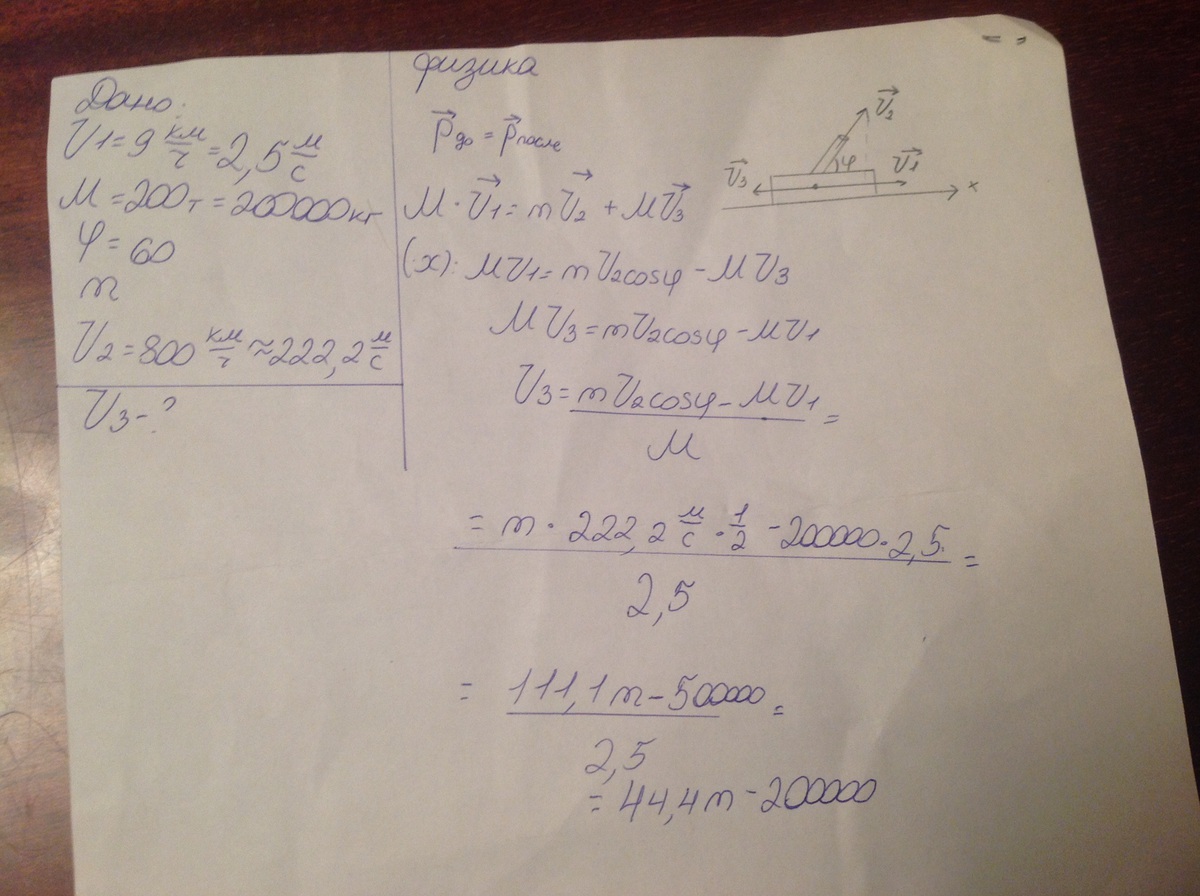 Дано:
V1 = 9 км/ч = 2,5 м/с
M = 200т = 200000кг
φ = 60
m
V2 = 800 км/ч ≈ 222,2 м/с
V3 - ?
физика
p⃗до = p⃗после
M · V⃗1 = mV⃗2 + MV⃗3
(x): MV1 = mV2cosφ - MV3
MV3 = mV2cosφ - MV1
V3 = (mV2cosφ - MV1) / M =
= (m · 222,2 м/с · 1/2 - 200000 · 2,5) / 2,5 =
= (111,1m - 500000) / 2,5 =
= 44,4m - 200000
V⃗2
φ
V⃗1
V⃗3
x